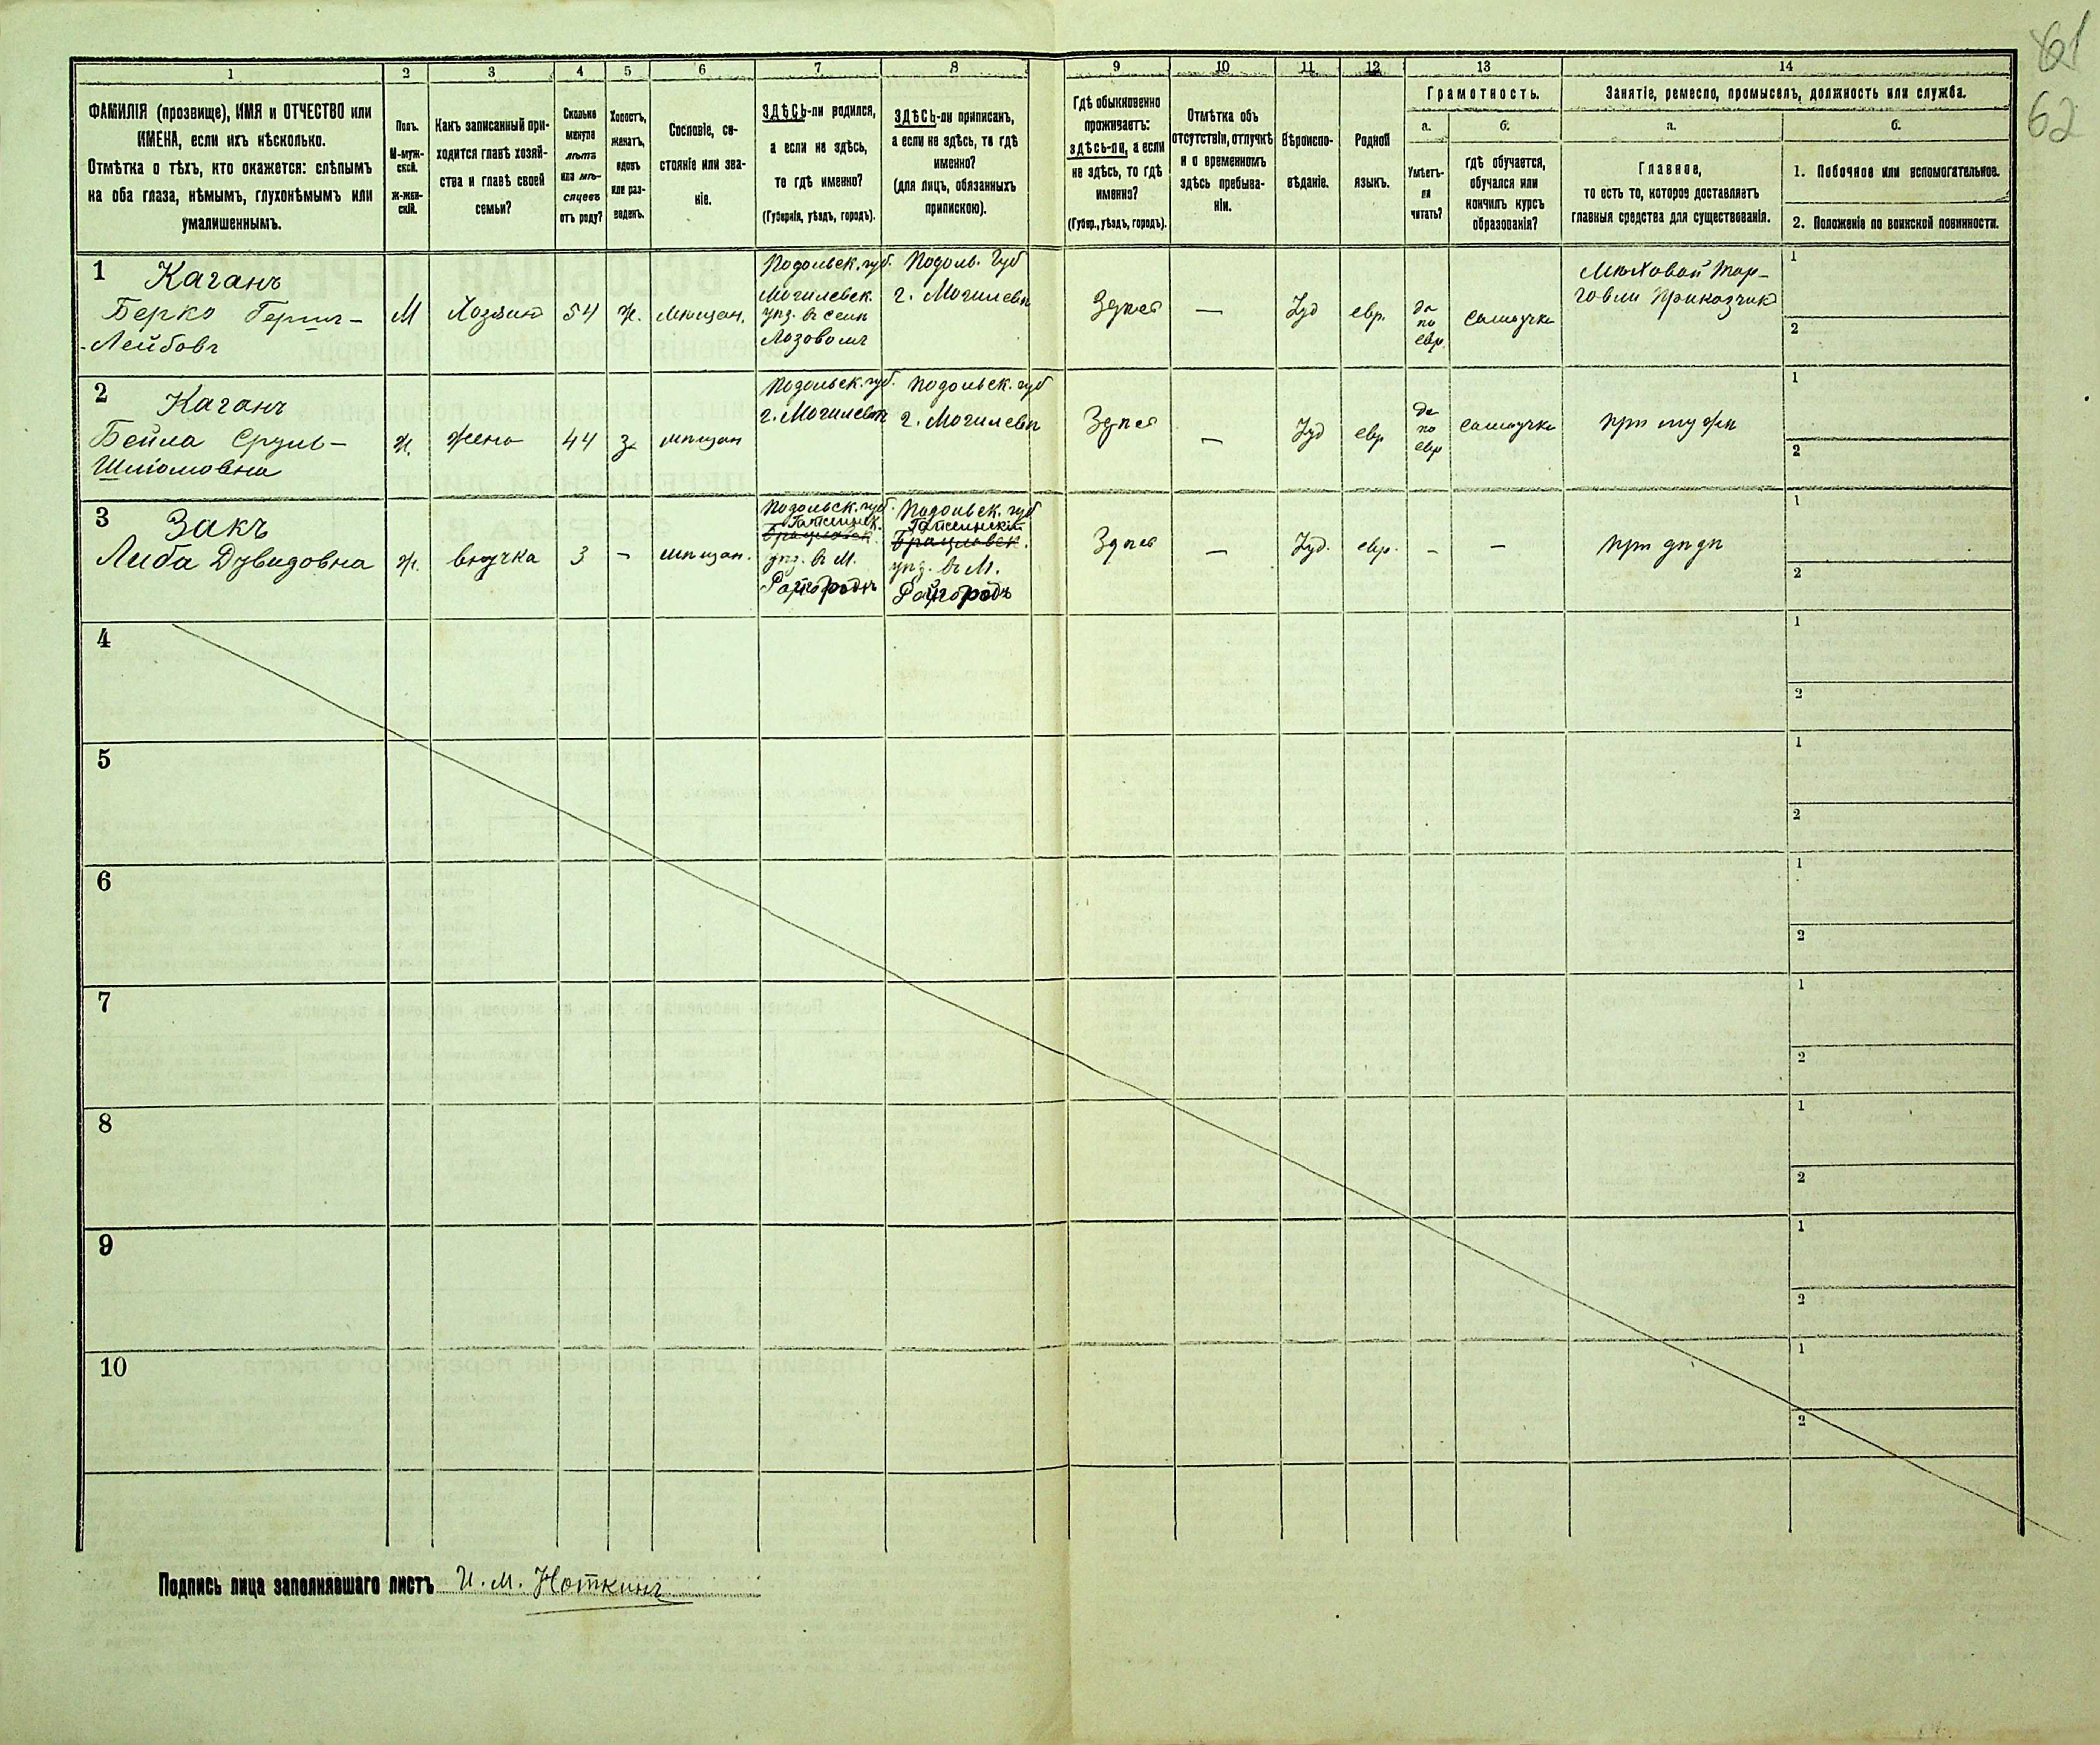 61
62
1 2 3 4 5 6 7 8 9 10 11 12 13 14
ФАМИЛІЯ (прозвище), ИМЯ и ОТЧЕСТВО или
ИМЕНА, если ихъ нѣсколько.
Отмѣтка о тѣхъ, кто окажется: слѣпымъ
на оба глаза, нѣмымъ, глухонѣмымъ или
умалишеннымъ.
Полъ.
М-муж-
ской.
Ж-жен-
скій.
Какъ записанный при-
ходится главѣ хозяй-
ства и главѣ своей
семьи?
Сколько
минуло
лѣтъ
или мѣ-
сяцевъ
отъ роду?
Холостъ,
женатъ,
вдовъ
или раз-
веденъ.
Сословіе, со-
стояніе или зва-
ніе.
ЗДѢСЬ-ли родился,
а если не здѣсь,
то гдѣ именно?
(Губернія, уѣздъ, городъ).
ЗДѢСЬ-ли приписанъ,
а если не здѣсь, то гдѣ
именно?
(для лицъ, обязанныхъ
припискою).
Гдѣ обыкновенно
проживаетъ:
здѣсь-ли, а если
не здѣсь, то гдѣ
именно?
(Губер., уѣздъ, городъ).
Отмѣтка объ
отсутствіи, отлучкѣ
и о временномъ
здѣсь пребыва-
ніи.
Вѣроиспо-
вѣданіе.
Родной
языкъ.
Грамотность.
а.
Умѣетъ-
ли
читать?
б.
гдѣ обучается,
обучался или
кончилъ курсъ
образованія?
Занятіе, ремесло, промыселъ, должность или служба.
а.
Главное,
то есть то, которое доставляетъ
главныя средства для существованія.
б.
1. Побочное или вспомогательное.
2. Положеніе по воинской повинности.
1
Каганъ
Берко Герш-
-Лейбовъ
М
Хозяин
54
ж.
мѣщан.
Подольск. губ.
Могилевск.
уѣз. в селѣ
Лозовомъ
Подоль. Губ
г. Могилевѣ
Здѣсь
—
Іуд
евр.
да
по
евр.
самоучка
Мѣховой тор-
говли приказчик
1
2
2
Каганъ
Бейла Сруль-
Шліомовна
ж.
жена
44
з.
мѣщан
Подольск. губ.
г. Могилевѣ
Подольск. губ
г. Могилевѣ
Здѣсь
—
Іуд
евр
да
по
евр
самоучка
при мужѣ
1
2
3
Закъ
Либа Дувидовна
ж.
внучка
3
-
мѣщан.
Подольск. губ.
Гайсинск.
Брацлавск.
уѣз. в М.
Райгородѣ
Подольск. губ
Гайсинскій
Брацлавск.
уѣз. в М.
Райгородъ
Здѣсь
—
Іуд.
евр.
-
-
при дѣдѣ
1
2
4
1
2
5
1
2
6
1
2
7
1
2
8
1
2
9
1
2
10
1
2
Подпись лица заполнявшаго листъ И. М. Ноткинъ